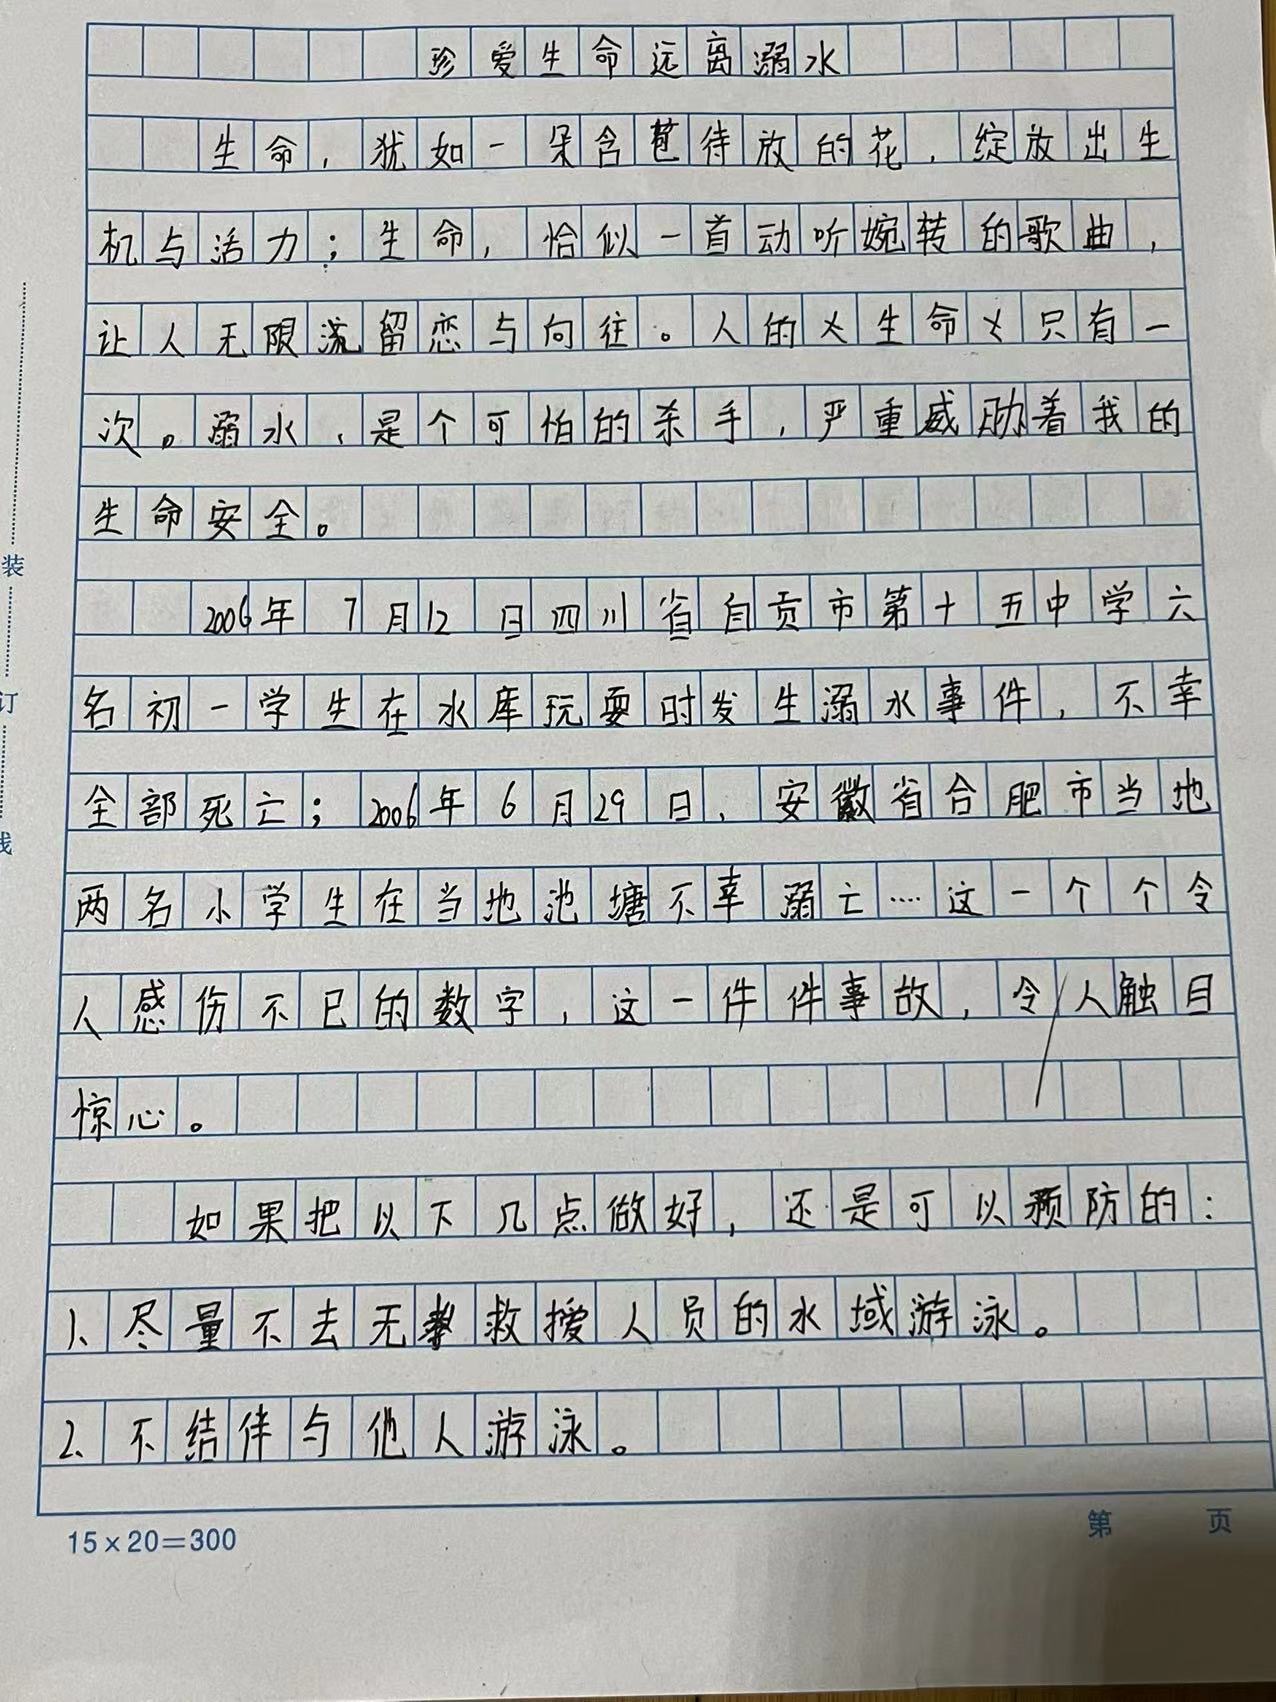 珍爱生命远离溺水
生命，犹如一朵含苞待放的花，绽放出生
机与活力；生命，恰似一首动听婉转的歌曲，
让人无限流留恋与向往。人的乂生命乂只有一
次。溺水，是个可怕的杀手，严重威胁着我的
生命安全。
2006年7月12日四川省自贡市第十五中学六
名初一学生在水库玩耍时发生溺水事件，不幸
全部死亡；2006年6月29日，安徽省合肥市当地
两名小学生在当地池塘不幸溺亡····这一个个令
人感伤不已的数字，这一件件事故，令人触目
惊心。
如果把以下几点做好，还是可以预防的：
1、尽量不去无救援人员的水域游泳。
2、不结伴与他人游泳。
装
订
线
15×20=300
第 页